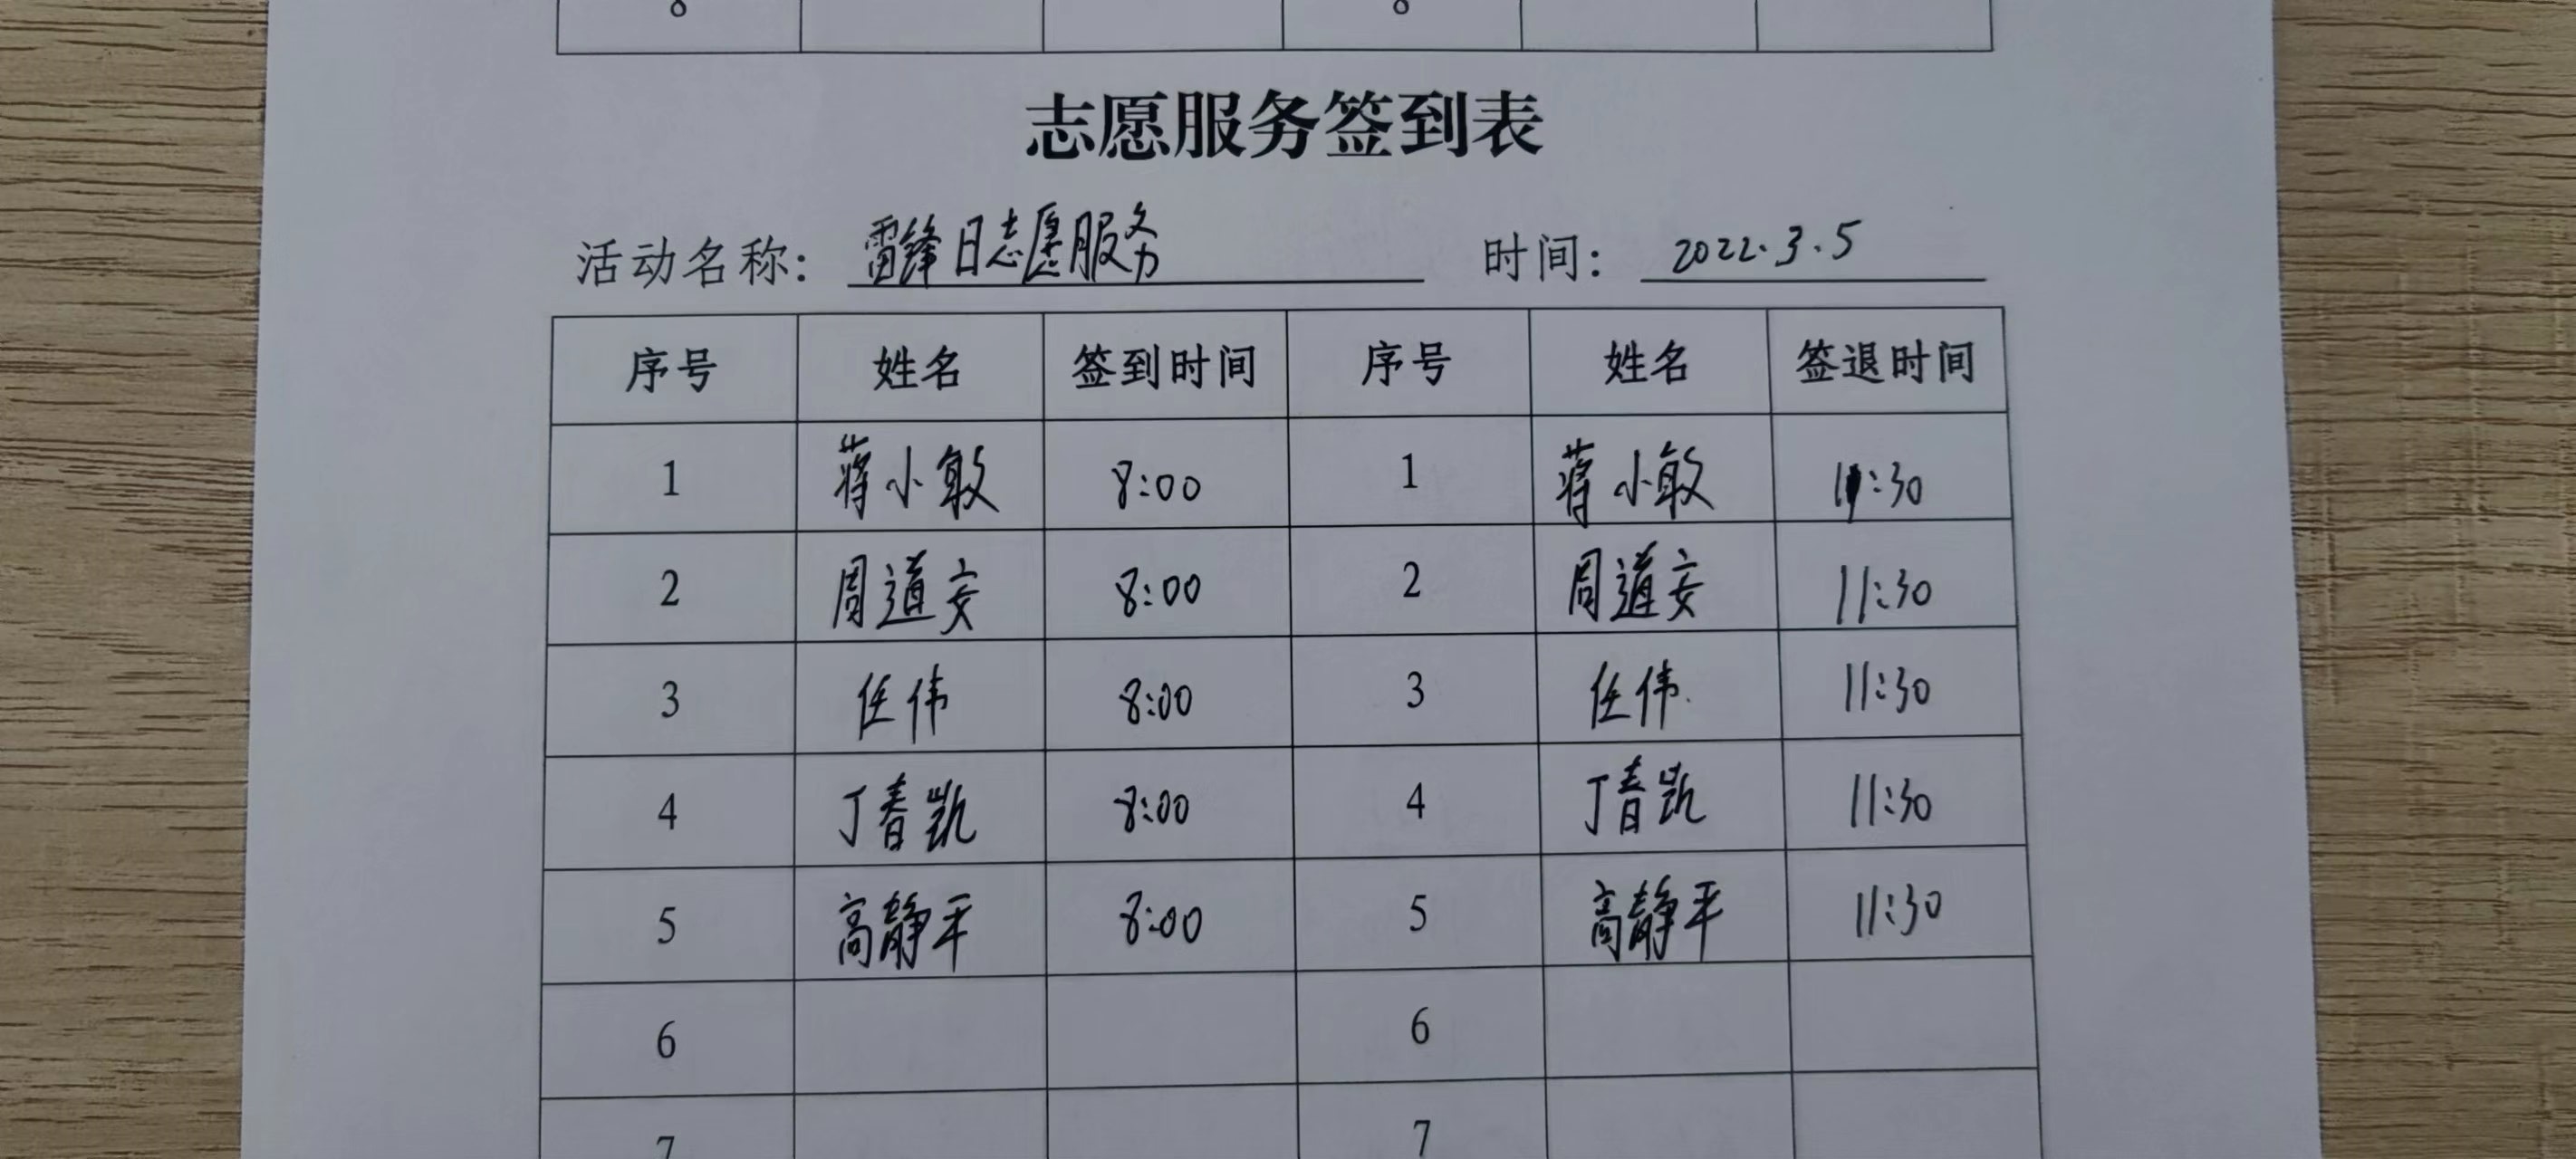 8 8
志愿服务签到表
活动名称: 雷锋日志愿服务 时间: 2022.3.5
序号 姓名 签到时间 序号 姓名 签退时间
1 蒋小敏 8:00 1 蒋小敏 11:30
2 周道安 8:00 2 周道安 11:30
3 任伟 8:00 3 任伟 11:30
4 丁春凯 8:00 4 丁春凯 11:30
5 高静平 8:00 5 高静平 11:30
6 6
7 7